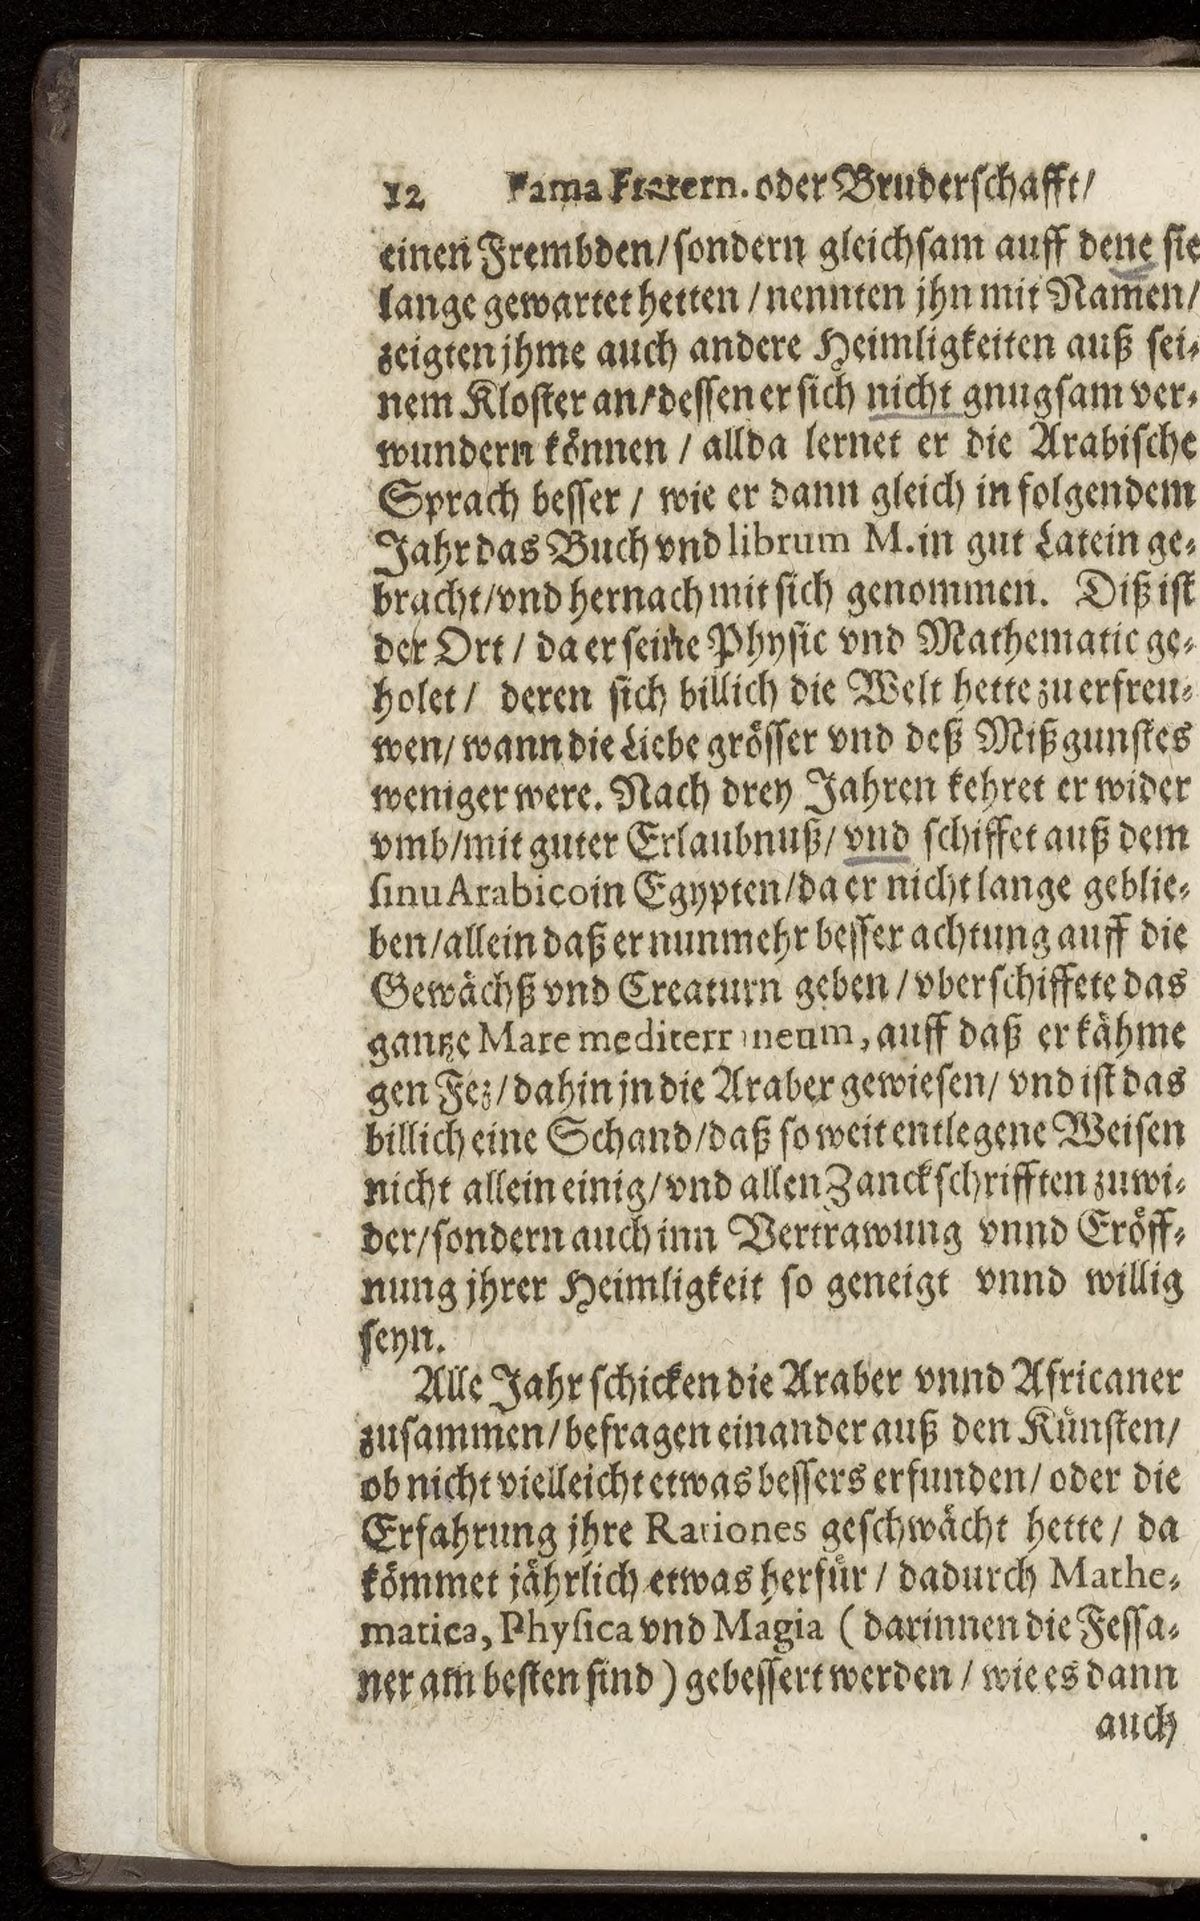 12 Fama Fratern. oder Bruderschafft/
einen Frembden/sondern gleichsam auff dene sie
lange gewartet hetten / nennten jhn mit Namen/
zeigten jhme auch andere Heimligkeiten auß sei-
nem Kloster an/dessen er sich nicht gnugsam ver-
wundern können / allda lernet er die Arabische
Sprach besser / wie er dann gleich in folgendem
Jahr das Buch vnd librum M. in gut Latein ge-
bracht/vnd hernach mit sich genommen. Diß ist
der Ort / da er seine Physic vnd Mathematic ge-
holet / deren sich billich die Welt hette zu erfreu-
wen/ wann die Liebe grösser vnd deß Mißgunstes
weniger were. Nach drey Jahren kehret er wider
vmb/mit guter Erlaubnuß/ vnd schiffet auß dem
sinu Arabico in Egypten/da er nicht lange geblie-
ben/allein daß er nunmehr besser achtung auff die
Gewächß vnd Creaturn geben / vberschiffete das
gantze Mare mediterraneum, auff daß er kähme
gen Fez/dahin jn die Araber gewiesen/ vnd ist das
billich eine Schand/daß so weit entlegene Weisen
nicht allein einig/vnd allen Zanckschrifften zuwi-
der/sondern auch inn Vertrawung vnnd Eröff-
nung jhrer Heimligkeit so geneigt vnnd willig
seyn.
Alle Jahr schicken die Araber vnnd Africaner
zusammen/befragen einander auß den Künsten/
ob nicht vielleicht etwas bessers erfunden/ oder die
Erfahrung jhre Rationes geschwächt hette / da
kömmet jährlich etwas herfür / dadurch Mathe-
matica, Physica vnd Magia ( darinnen die Fessa-
ner am besten sind ) gebessert werden / wie es dann
auch